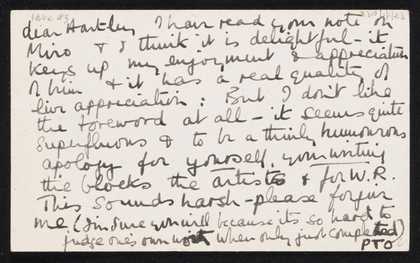 dear Hartley I have read your note on
Miro & I think it is delightful - it
keys up my enjoyment & appreciation
of him & it has a real quality of
live appreciation: But I don't like
the foreword at all - it seems quite
superfluous & to be a thinly humourous
apology for yourself, your writing
the blocks the artists & for W.R.
This sounds harsh - please forgive
me, (I'm sure you will because its so hard to
judge one's own work when only just completed)
PTO